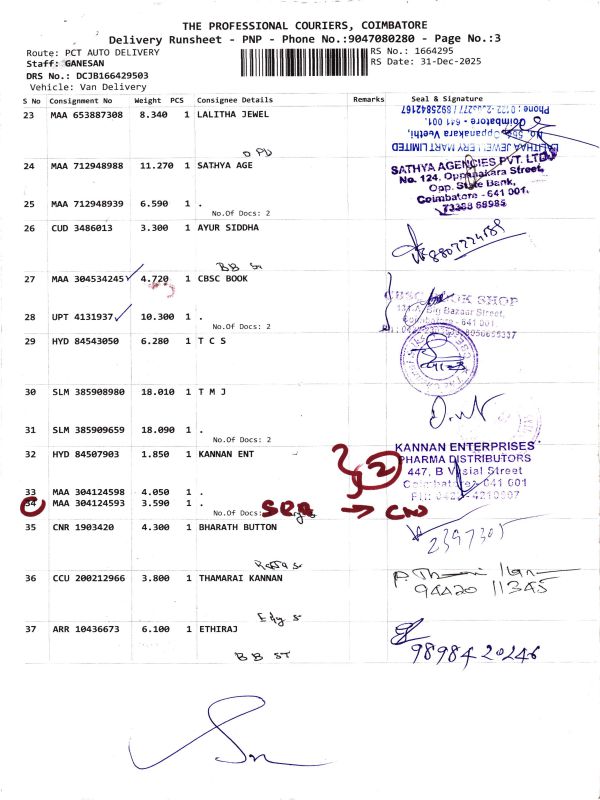 THE PROFESSIONAL COURIERS, COIMBATORE
Delivery Runsheet - PNP - Phone No.:9047080280 - Page No.:3
Route: PCT AUTO DELIVERY
RS No.: 1664295
Staff: GANESAN
RS Date: 31-Dec-2025
DRS No.: DCJB166429503
Vehicle: Van Delivery
S No Consignment No Weight PCS Consignee Details Remarks Seal & Signature
23 MAA 653887308 8.340 1 LALITHA JEWEL
LALITHAA JEWELLERY MART LIMITED
Oppanakara Veethi,
Coimbatore - 641 001.
24 MAA 712948988 11.270 1 SATHYA AGE
SATHYA AGENCIES PVT. LTD
No. 124, Oppanakara Street,
Opp. State Bank,
Coimbatore - 641 001.
73388 68985
25 MAA 712948939 6.590 1 .
No.Of Docs: 2
26 CUD 3486013 3.300 1 AYUR SIDDHA
8807224589
27 MAA 304534245 4.720 1 CBSC BOOK
CBSC BOOK SHOP
Big Bazaar Street,
Coimbatore - 641 001.
28 UPT 4131937 10.300 1 .
No.Of Docs: 2
29 HYD 84543050 6.280 1 T C S
30 SLM 385908980 18.010 1 T M J
31 SLM 385909659 18.090 1 .
No.Of Docs: 2
32 HYD 84507903 1.850 1 KANNAN ENT
2
KANNAN ENTERPRISES
PHARMA DISTRIBUTORS
447, B Vysial Street
Coimbatore 641 001
PH: 0422-4210007
33 MAA 304124598 4.050 1 .
34 MAA 304124593 3.590 1 .
No.Of Docs:
35 CNR 1903420 4.300 1 BHARATH BUTTON
2397305
36 CCU 200212966 3.800 1 THAMARAI KANNAN
94420 11345
37 ARR 10436673 6.100 1 ETHIRAJ
BB ST
98984 20246